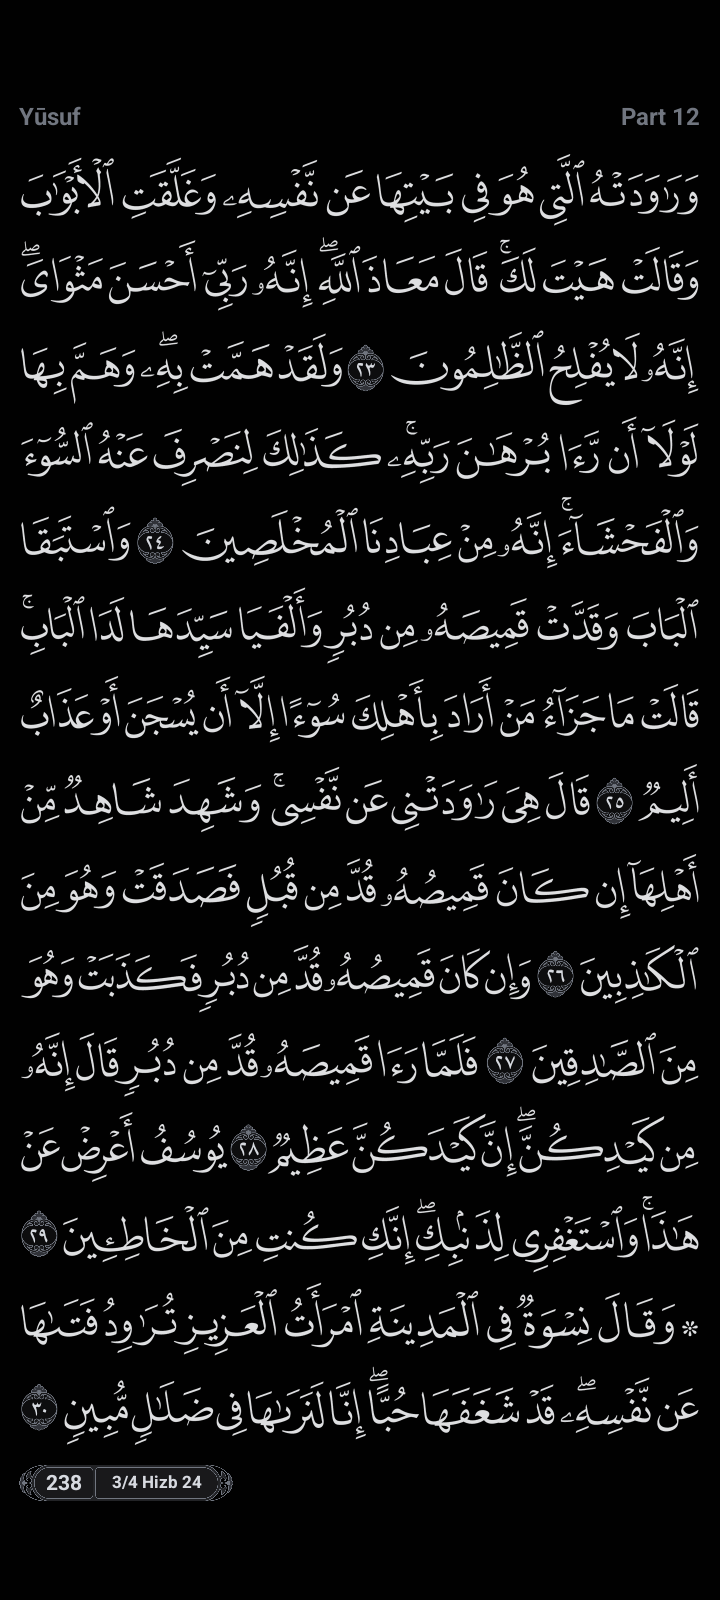 Yūsuf
Part 12
وَرَٰوَدَتْهُ ٱلَّتِى هُوَ فِى بَيْتِهَا عَن نَّفْسِهِۦ وَغَلَّقَتِ ٱلْأَبْوَٰبَ
وَقَالَتْ هَيْتَ لَكَ ۚ قَالَ مَعَاذَ ٱللَّهِ ۖ إِنَّهُۥ رَبِّىٓ أَحْسَنَ مَثْوَاىَ ۖ
إِنَّهُۥ لَا يُفْلِحُ ٱلظَّٰلِمُونَ ٢٣ وَلَقَدْ هَمَّتْ بِهِۦ ۖ وَهَمَّ بِهَا
لَوْلَآ أَن رَّءَا بُرْهَٰنَ رَبِّهِۦ ۚ كَذَٰلِكَ لِنَصْرِفَ عَنْهُ ٱلسُّوٓءَ
وَٱلْفَحْشَآءَ ۚ إِنَّهُۥ مِنْ عِبَادِنَا ٱلْمُخْلَصِينَ ٢٤ وَٱسْتَبَقَا
ٱلْبَابَ وَقَدَّتْ قَمِيصَهُۥ مِن دُبُرٍ وَأَلْفَيَا سَيِّدَهَا لَدَا ٱلْبَابِ ۚ
قَالَتْ مَا جَزَآءُ مَنْ أَرَادَ بِأَهْلِكَ سُوٓءًا إِلَّآ أَن يُسْجَنَ أَوْ عَذَابٌ
أَلِيمٌ ٢٥ قَالَ هِىَ رَٰوَدَتْنِى عَن نَّفْسِى ۚ وَشَهِدَ شَاهِدٌ مِّنْ
أَهْلِهَآ إِن كَانَ قَمِيصُهُۥ قُدَّ مِن قُبُلٍ فَصَدَقَتْ وَهُوَ مِنَ
ٱلْكَٰذِبِينَ ٢٦ وَإِن كَانَ قَمِيصُهُۥ قُدَّ مِن دُبُرٍ فَكَذَبَتْ وَهُوَ
مِنَ ٱلصَّٰدِقِينَ ٢٧ فَلَمَّا رَءَا قَمِيصَهُۥ قُدَّ مِن دُبُرٍ قَالَ إِنَّهُۥ
مِن كَيْدِكُنَّ ۖ إِنَّ كَيْدَكُنَّ عَظِيمٌ ٢٨ يُوسُفُ أَعْرِضْ عَنْ
هَٰذَا ۚ وَٱسْتَغْفِرِى لِذَنۢبِكِ ۖ إِنَّكِ كُنتِ مِنَ ٱلْخَاطِـِٔينَ ٢٩
۞ وَقَالَ نِسْوَةٌ فِى ٱلْمَدِينَةِ ٱمْرَأَتُ ٱلْعَزِيزِ تُرَٰوِدُ فَتَىٰهَا
عَن نَّفْسِهِۦ ۖ قَدْ شَغَفَهَا حُبًّا ۖ إِنَّا لَنَرَىٰهَا فِى ضَلَٰلٍ مُّبِينٍ ٣٠
238
3/4 Hizb 24